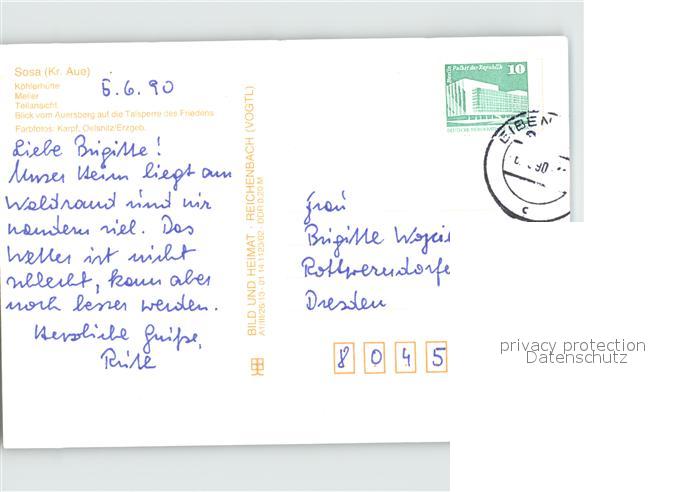 Sosa (Kr. Aue)
Köhlerhütte
Meiler
Teilansicht
Blick vom Auersberg auf die Talsperre des Friedens
Farbfotos: Karpf, Oelsnitz/Erzgeb.
6.6.90
Liebe Brigitte!
Unser Heim liegt am
Waldrand und wir
wandern viel. Das
Wetter ist nicht
schlecht, kann aber
noch besser werden.
Herzliche Grüße,
BILD UND HEIMAT · REICHENBACH (VOGTL)
A1/III/26/13 01 14 1123/02 DDR 0,20 M
Berlin Palast der Republik
10
EIBEN
90
c
Frau
Brigitte
Dresden
8 0 4 5
privacy protection
Datenschutz